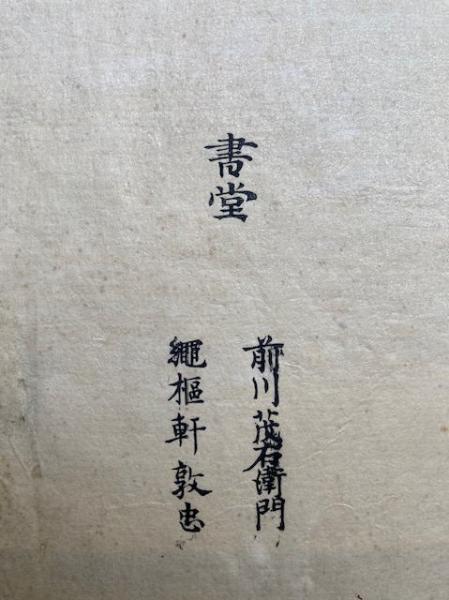 書堂
前川茂右衛門
繩樞軒敦忠